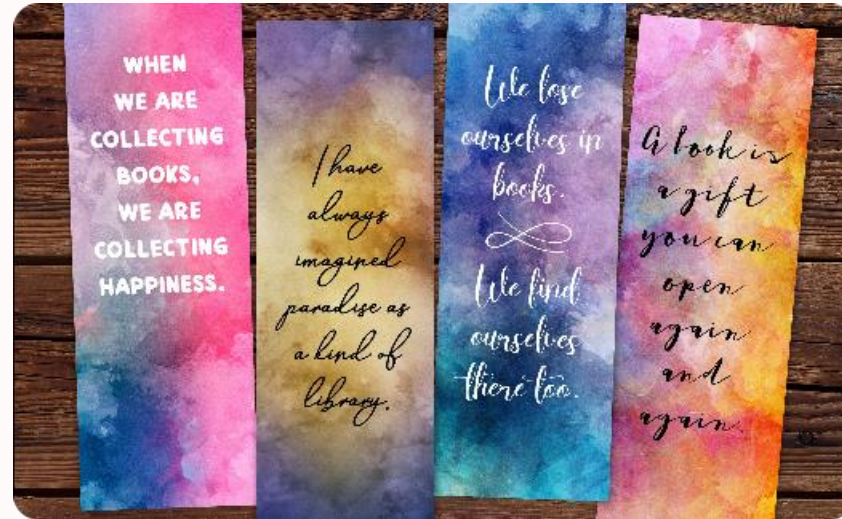 WHEN
WE ARE
COLLECTING
BOOKS,
WE ARE
COLLECTING
HAPPINESS.
I have
always
imagined
paradise as
a kind of
library.
We lose
ourselves in
books.
We find
ourselves
there too.
A book is
a gift
you can
open
again
and
again.